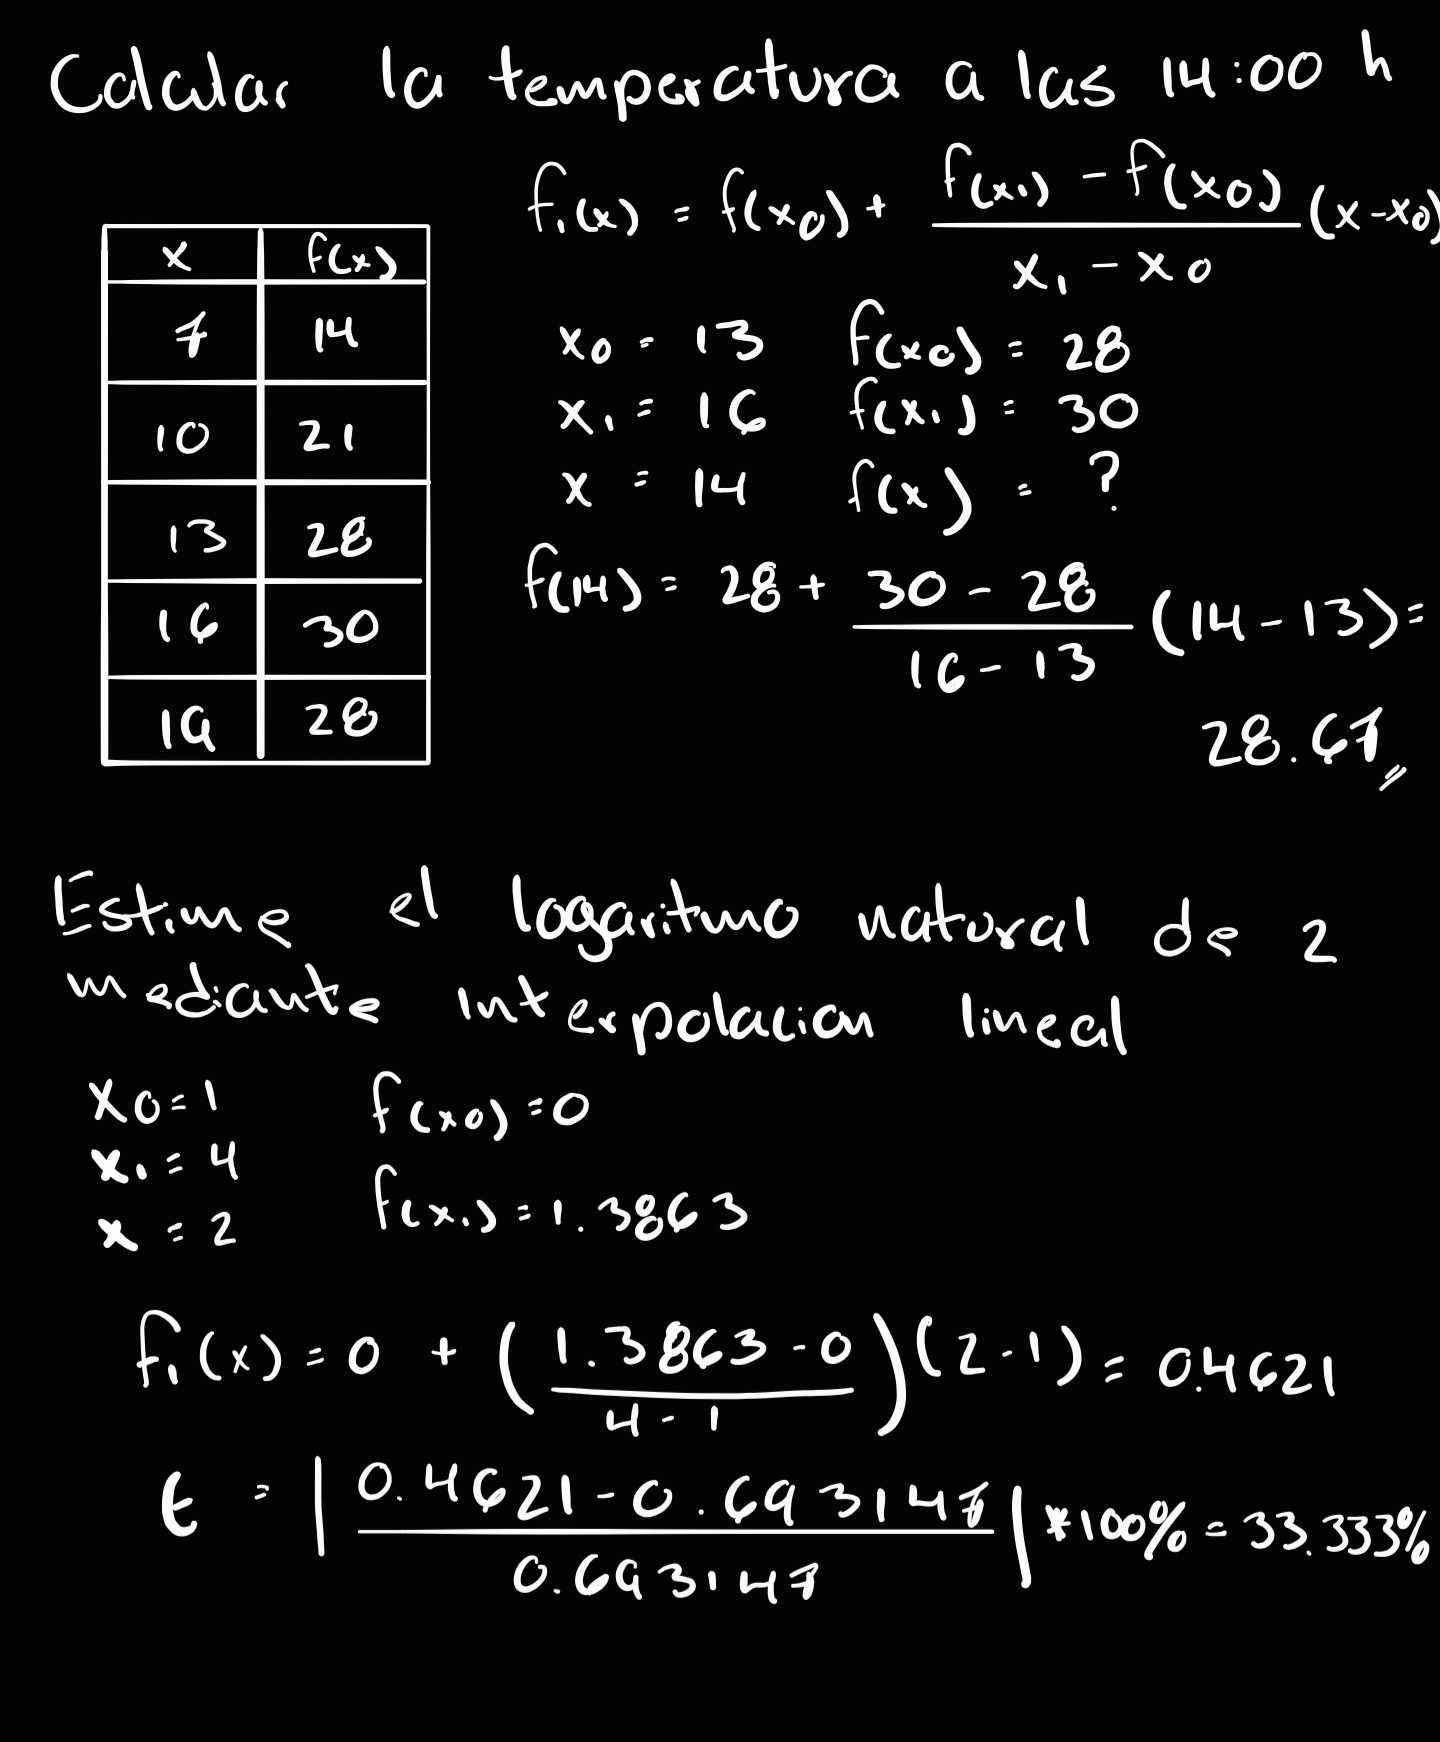 Calcular la temperatura a las 14:00 h
f₁(x) = f(x₀) + f(x₁) - f(x₀) / x₁ - x₀ (x-x₀)
x f(x)
7 14
10 21
13 28
16 30
19 28
x₀ = 13 f(x₀) = 28
x₁ = 16 f(x₁) = 30
x = 14 f(x) = ?
f(14) = 28 + 30 - 28 / 16 - 13 (14 - 13) =
28.67
Estime el logaritmo natural de 2
mediante interpolacion lineal
x₀ = 1 f(x₀) = 0
x₁ = 4 f(x₁) = 1.3863
x = 2
f₁(x) = 0 + (1.3863 - 0 / 4 - 1)(2 - 1) = 0.4621
ε = |0.4621 - 0.693147 / 0.693147| *100% = 33.333%